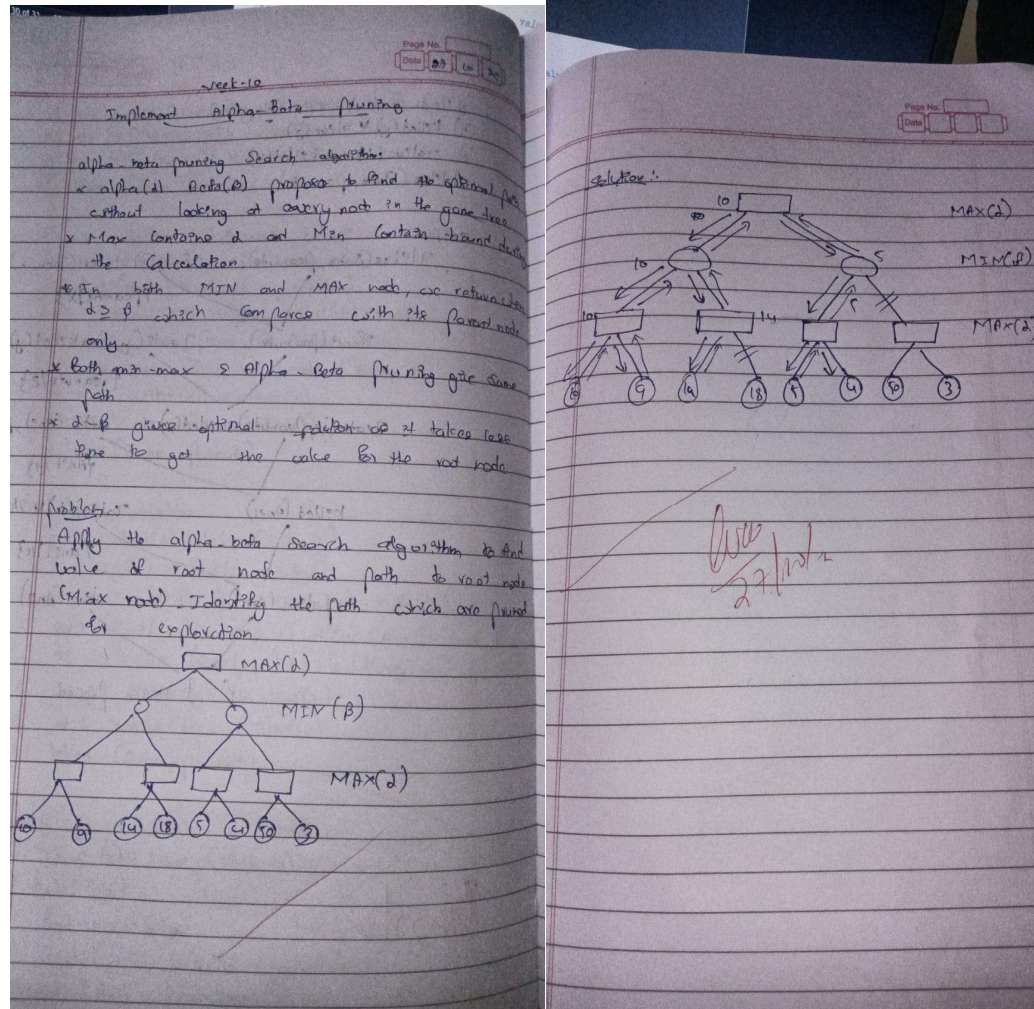 Page No.
Date 27 10
week-10
Implement Alpha-Beta pruning
alpha-beta pruning Search algorithm
* alpha(α) Beta(β) to find the optimal path
without looking at every node in the game tree
* Max Contains α and Min Contain bound during
the Calculation
* In both MIN and MAX node, we return when
α ≥ β which compares with its Parent node
only.
* Both min-max & Alpha-Beta pruning give same
path
* α-β gives optimal solution as it takes less
time to get the value for the root node
problem:-
Apply the alpha-beta search algorithm to find
value of root node and path to root node
(Max node). Identify the path which are pruned
for exploration.
MAX(α)
MIN(β)
MAX(α)
10 9 14 18 5 4 50 3
Page No.
Date
Solution:-
10 MAX(α)
10 5 MIN(β)
10 14 5 MAX(α)
10 9 14 18 5 4 50 3
27/10/2